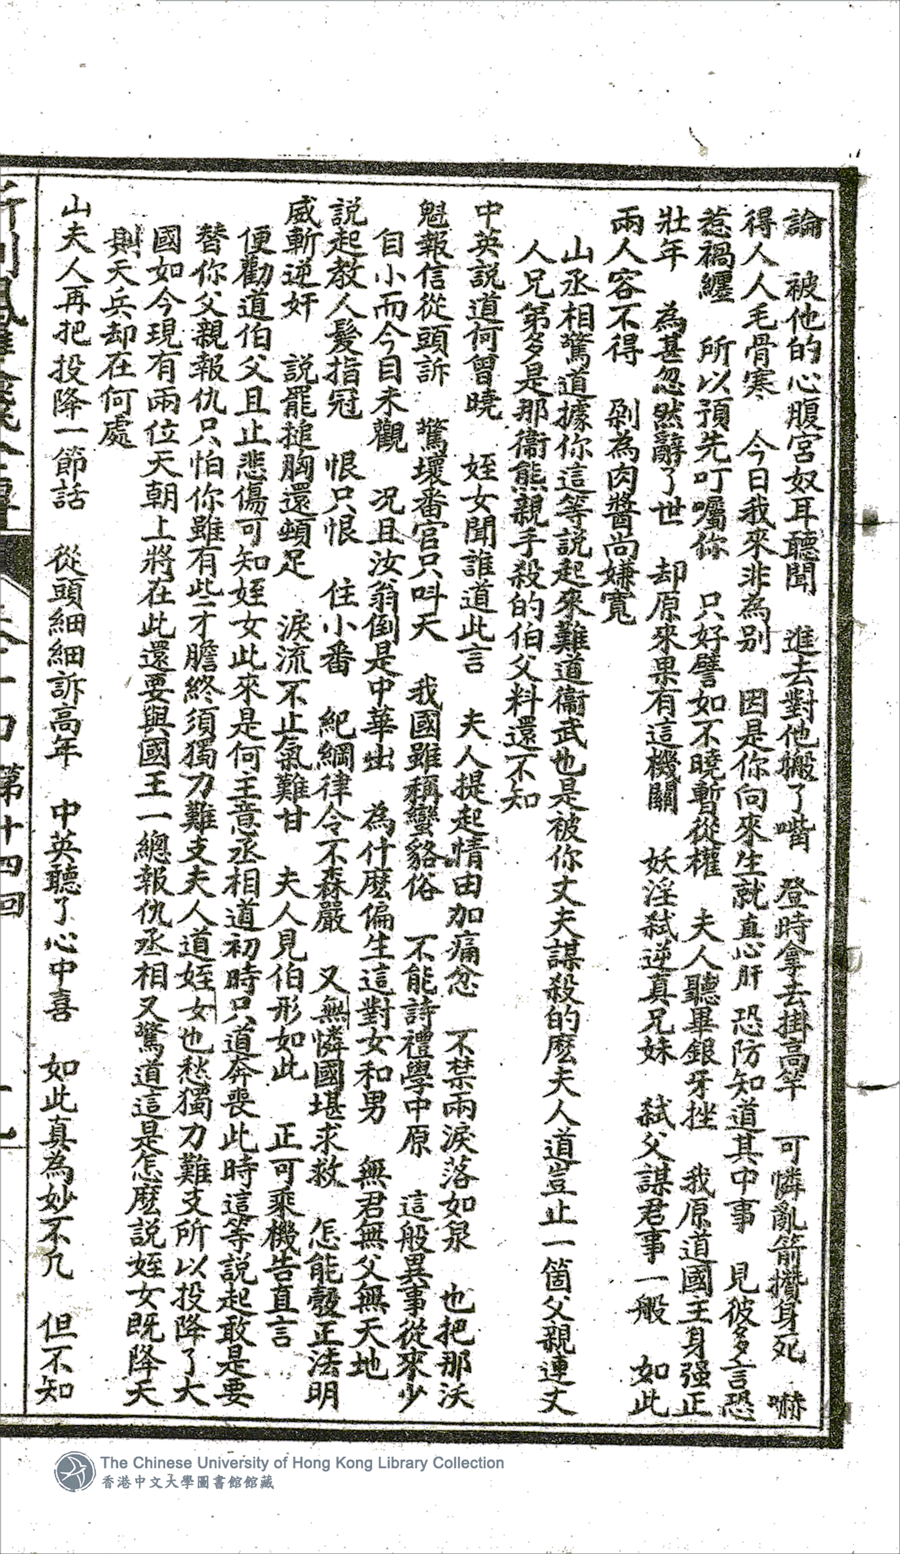 論　被他的心腹宮奴耳聽聞　進去對他搬了嘴　登時拿去掛高竿　可憐亂箭攢身死　嚇
得人人毛骨寒　今日我來非為別　因是你向來生就直心肝　恐防知道其中事　見彼多言恐
惹禍纏　所以預先叮囑你　只好譬如不曉暫從權　夫人聽畢銀牙挫　我原道國王身强正
壯年　為甚忽然辭了世　却原來果有這機關　妖淫弑逆真兄妹　弑父謀君事一般　如此
兩人容不得　剁為肉醬尚嫌寬
山丞相驚道據你這等説起來難道衞武也是被你丈夫謀殺的麽夫人道豈止一箇父親連丈
人兄弟多是那衞熊親手殺的伯父料還不知
中英説道何曾曉　姪女聞誰道此言　夫人提起情由加痛忿　不禁兩淚落如泉　也把那沃
魁報信從頭訴　驚壞番官只叫天　我國雖稱蠻貉俗　不能詩禮學中原　這般異事從來少
自小而今目未觀　况且汝翁倒是中華出　為什麽偏生這對女和男　無君無父無天地
説起教人髮指冠　恨只恨　住小番　紀綱律令不森嚴　又無憐國堪求救　怎能彀正法明
威斬逆奸　説罷搥胸還頓足　淚流不止氣難甘　夫人見伯形如此　正可乘機告直言
便勸道伯父且止悲傷可知姪女此來是何主意丞相道初時只道奔喪此時這等説起敢是要
替你父親報仇只怕你雖有些才膽終須獨力難支夫人道姪女也愁獨力難支所以投降了大
國如今現有兩位天朝上將在此還要與國王一總報仇丞相又驚道這是怎麽説姪女既降天
則天兵却在何處
山夫人再把投降一節話　從頭細細訴高年　中英聽了心中喜　如此真為妙不凡　但不知
第十四回
The Chinese University of Hong Kong Library Collection
香港中文大學圖書館館藏